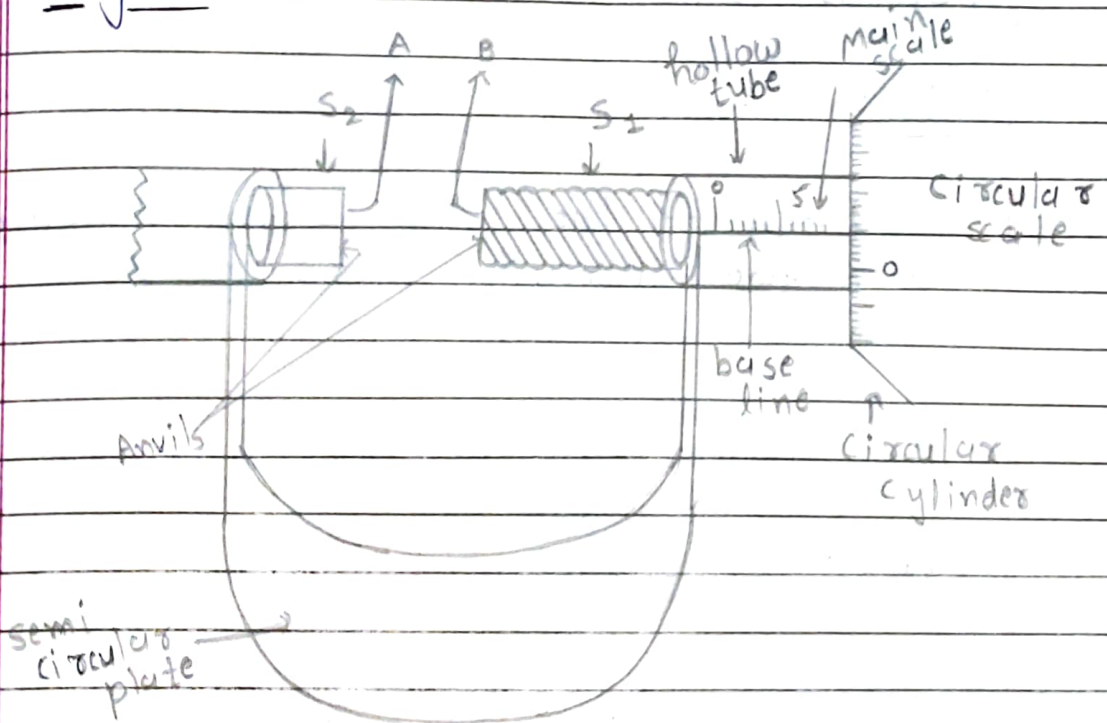 A
B
hollow
tube
Main
scale
S2
S1
0
5
Circular
scale
0
base
line
Anvils
Circular
Cylinder
semi
circular
plate